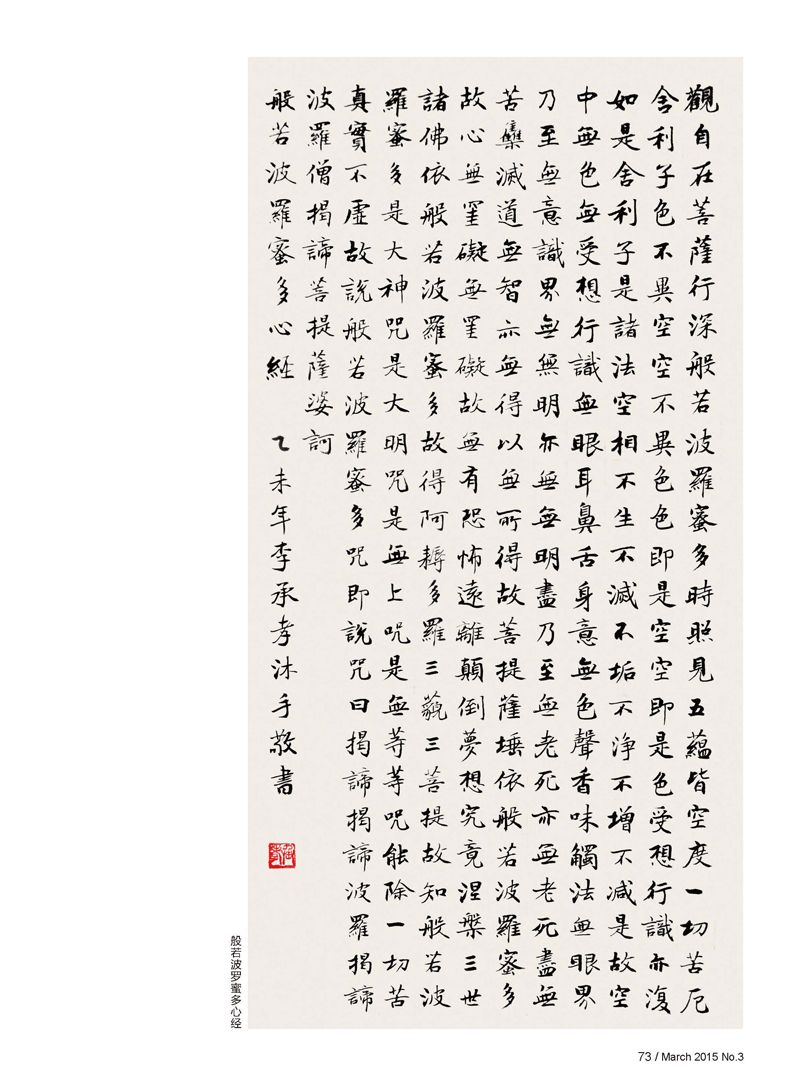 觀自在菩薩行深般若波羅蜜多時照見五蘊皆空度一切苦厄
舍利子色不異空空不異色色即是空空即是色受想行識亦復
如是舍利子是諸法空相不生不滅不垢不淨不增不減是故空
中無色無受想行識無眼耳鼻舌身意無色聲香味觸法無眼界
乃至無意識界無無明亦無無明盡乃至無老死亦無老死盡無
苦集滅道無智亦無得以無所得故菩提薩埵依般若波羅蜜多
故心無罣礙無罣礙故無有恐怖遠離顛倒夢想究竟涅槃三世
諸佛依般若波羅蜜多故得阿耨多羅三藐三菩提故知般若波
羅蜜多是大神咒是大明咒是無上咒是無等等咒能除一切苦
真實不虛故說般若波羅蜜多咒即說咒曰揭諦揭諦波羅揭諦
波羅僧揭諦菩提薩婆訶
般若波羅蜜多心經 乙未年李承孝沐手敬書
般若波罗蜜多心经
73 / March 2015 No.3